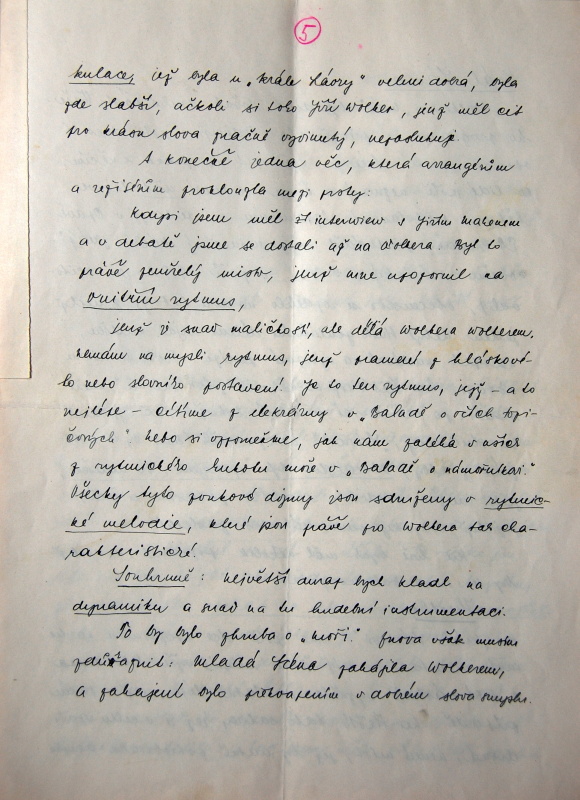 5
kulace, jež byla u „Krále Lávry" velmi dobrá, byla
zde slabší, ačkoli si toho Jiří Wolker, jenž měl cit
pro krásu slova značně vyvinutý, nezasluhuje.
A konečně jedna věc, která arrangérům
a režisérům proklouzla mezi prsty:
Kdysi jsem měl interview s Jiřím Mahenem
a v debatě jsme se dostali až na Wolkera. Byl to
právě zemřelý mistr, jenž mne upozornil na
vnitřní rytmus,
jenž je snad maličkostí, ale dělá Wolkera Wolkerem.
Nemám na mysli rytmus, jenž pramení z hláskové-
ho nebo slovního postavení. Je to ten rytmus, jejž – a to
nejlépe – cítíme z dekrármy v „Baladě o očích topi-
čových". Nebo si vzpomeňme, jak nám zaléhá v uších
z rytmického hukotu moře v „Baladě o námořníkovi."
Všecky tyto zvukové dojmy jsou sdruženy v rytmic-
ké melodie, které jsou právě pro Wolkera tak cha-
rakteristické.
Souhrnně: největší důraz bych kladl na
dynamiku a snad na tu hudební instrumentaci.
To by bylo zhruba o „moři". Znova však musím
zdůraznit: Mladá Scéna zahájila Wolkerem,
a zahájení bylo provedením v dobrém slova smyslu.